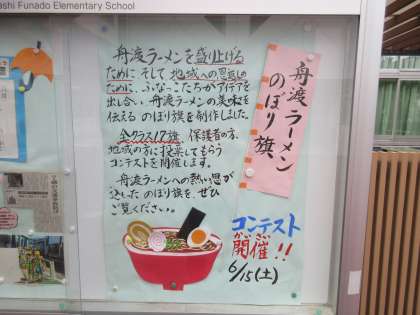 ashi Funado Elementary School
舟渡ラーメンを盛り上げる
ために そして 地域への恩返しの
ために、ふなっこたちがアイデアを
出し合い 舟渡ラーメンの美味を
伝える のぼり旗を制作しました。
全クラス17旗、保護者の方、
地域の方に投票してもらう
コンテストを開催します。
舟渡ラーメンへの熱い思いが
込もった のぼり旗を、ぜひ
ご覧ください。
舟渡ラーメン
のぼり旗
コンテスト
かいさい
開催!!
6/15(土)